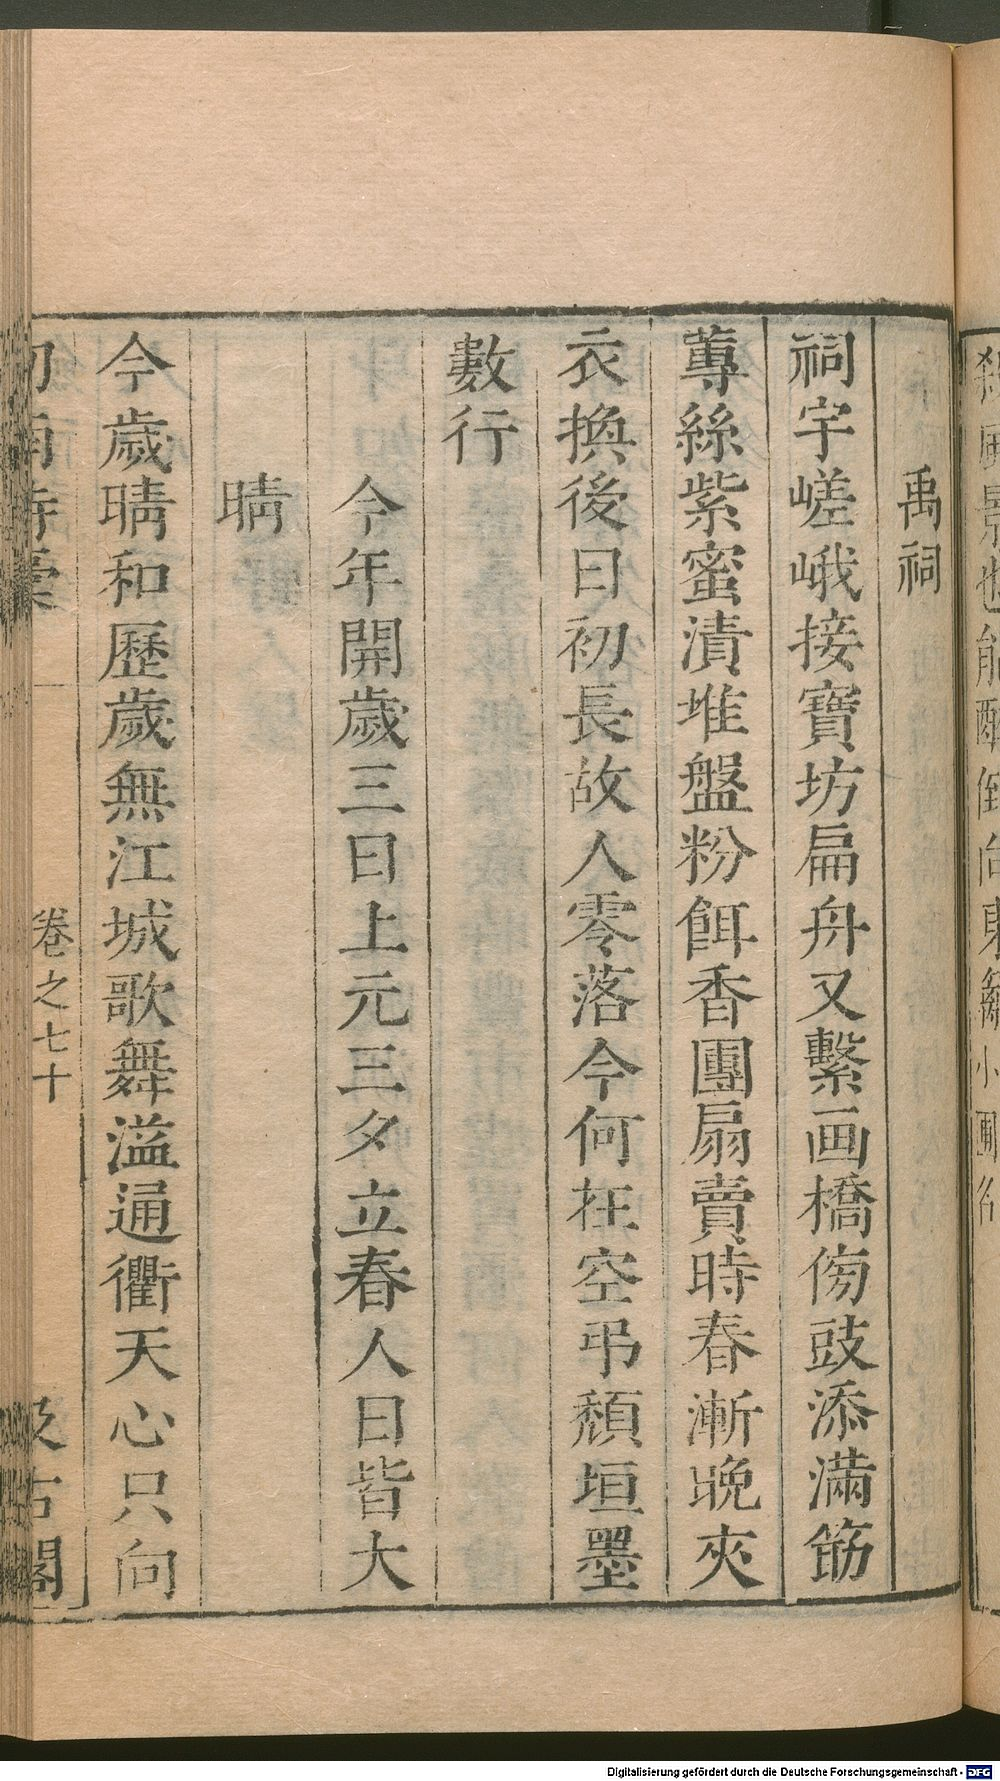 禹祠
祠宇嵯峨接寶坊扁舟又繫画橋傍豉添滿筯
蓴絲紫蜜漬堆盤粉餌香團扇賣時春漸晩夾
衣換後日初長故人零落今何在空弔頹垣墨
數行
今年開歲三日上元三夕立春人日皆大
晴
今歲晴和歷歲無江城歌舞溢通衢天心只向
劍南詩稾
卷之七十
汲古閣
Digitalisierung gefördert durch die Deutsche Forschungsgemeinschaft - DFG